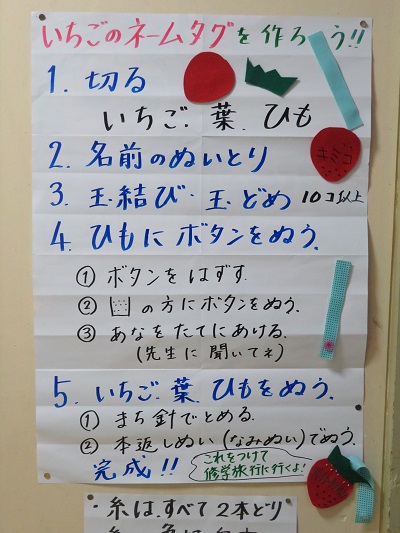 いちごのネームタグを作ろう!!
1. 切る
いちご. 葉. ひも
2. 名前のぬいとり
3. 玉結び・玉どめ 10コ以上
4. ひもにボタンをぬう.
① ボタンをはずす.
② の方にボタンをぬう.
③ あなをたてにあける.
(先生に聞いてネ)
5. いちご. 葉. ひもをぬう.
① まち針でとめる.
② 本返しぬい(なみぬい)でぬう.
完成!!
これをつけて
修学旅行に行くよ!
糸は、すべて2本どり